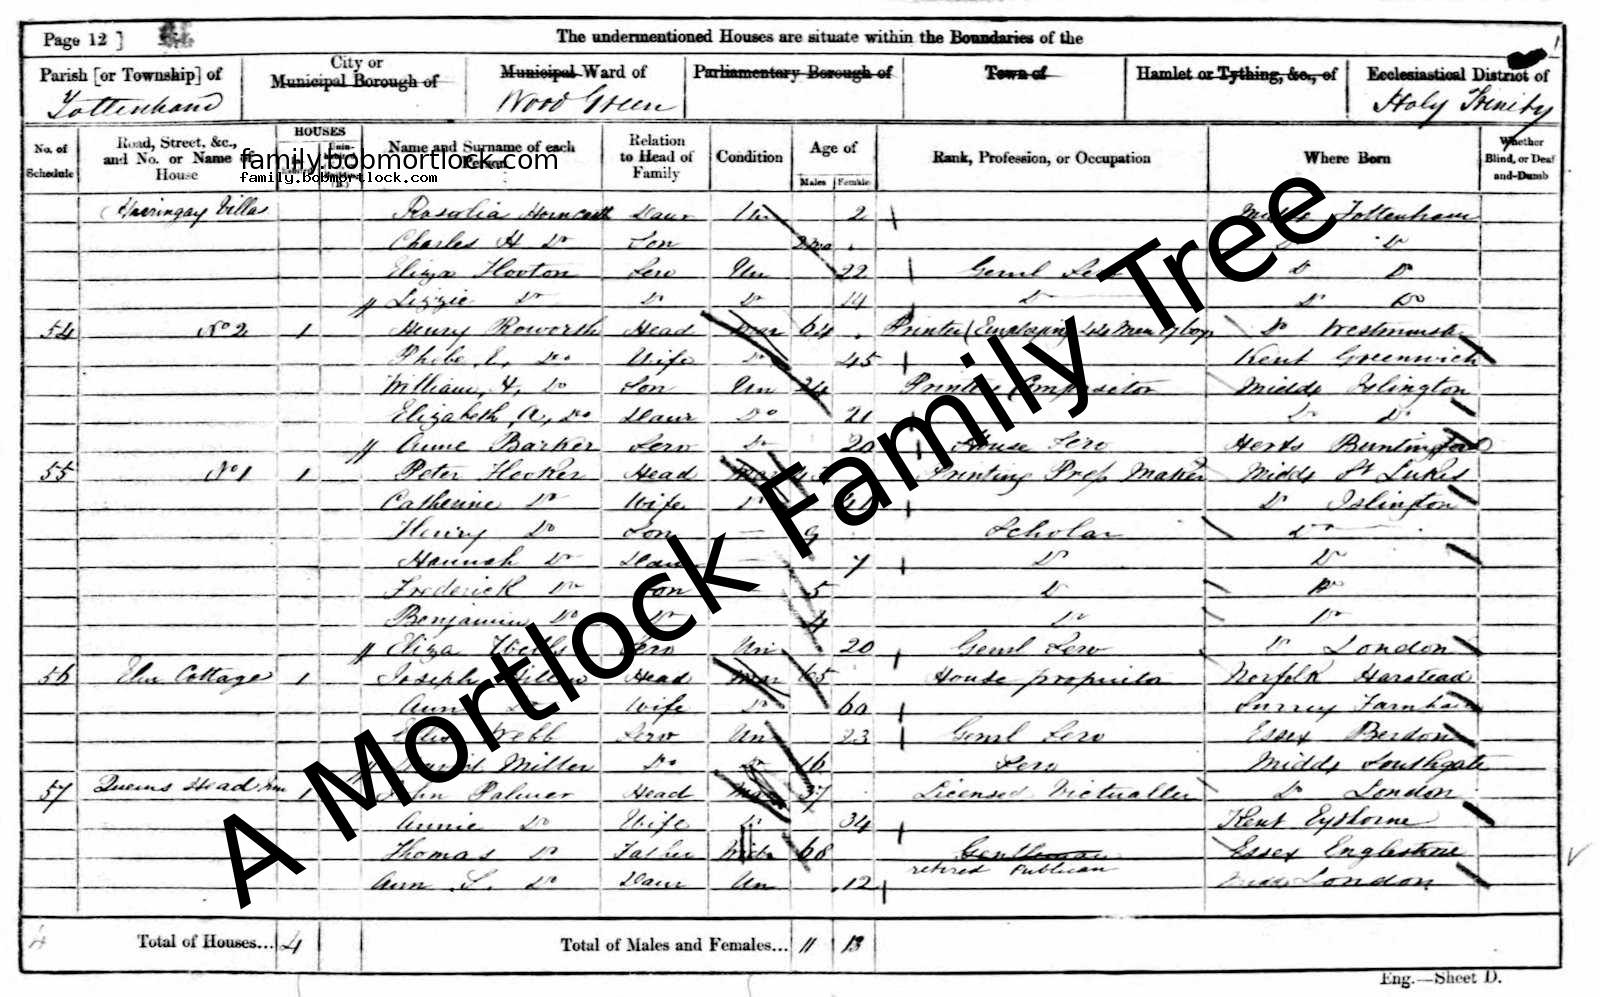 Page 12 ]
The undermentioned Houses are situate within the Boundaries of the
Parish [or Township] of
City or
Municipal Borough of
Municipal Ward of
Parliamentary Borough of
Town of
Hamlet or Tything, &c., of
Ecclesiastical District of
Tottenham
Wood Green
Holy Trinity
No. of Schedule
Road, Street, &c., and No. or Name of House
HOUSES
Name and Surname of each Person
Relation to Head of Family
Condition
Age of
Males
Females
Rank, Profession, or Occupation
Where Born
Whether Blind, or Deaf-and-Dumb
family.bobmortlock.com
family.bobmortlock.com
Harringay Villas Rosalia Horncastle Daur Un 2 Midds Tottenham
Charles H Do Son 2 mo Do Do
Eliza Hooton Serv Un 22 Genrl Serv Do Do
Lizzie Do Do Do 14 Do Do Do
54 No 2 1 Henry Roworth Head Mar 64 Printer (Employing Men & boys Do Westminster
Phebe E, Do Wife Do 45 Kent Greenwich
William, H, Do Son Un 24 Printer Compositor Midds Islington
Elizabeth, A, Do Daur Do 21 Do Do
Anne Barker Serv Do 20 House Serv Herts Buntingford
55 No 1 1 Peter Hooker Head Mar Printing Press Maker Midds St Lukes
Catherine Do Wife Do 41 Do Islington
Henry Do Son — 9 Scholar Do
Hannah Do Daur — 7 Do Do
Frederick Do Son — 5 Do Do
Benjamin Do Do 4 Do Do
Eliza Serv Un 20 Genrl Serv Do London
56 Elm Cottage 1 Joseph Head Mar 65 House proprietor Norfolk
Ann Do Wife Do 60 Surrey Farnham
Webb Serv Un 23 Genrl Serv Essex Berdon
David Miller Do Do 16 Serv Midds Southgate
57 Queens Head Inn 1 John Palmer Head Mar 37 Licensed Victualler Do London
Annie Do Wife Do 34 Kent Eythorne
Thomas Do Father Widr 68 Gentleman Essex
retired Publican
Ann S. Do Daur Un 12 Midds London
4 Total of Houses... 4
Total of Males and Females... 11 13
Eng.—Sheet D.
A Mortlock Family Tree